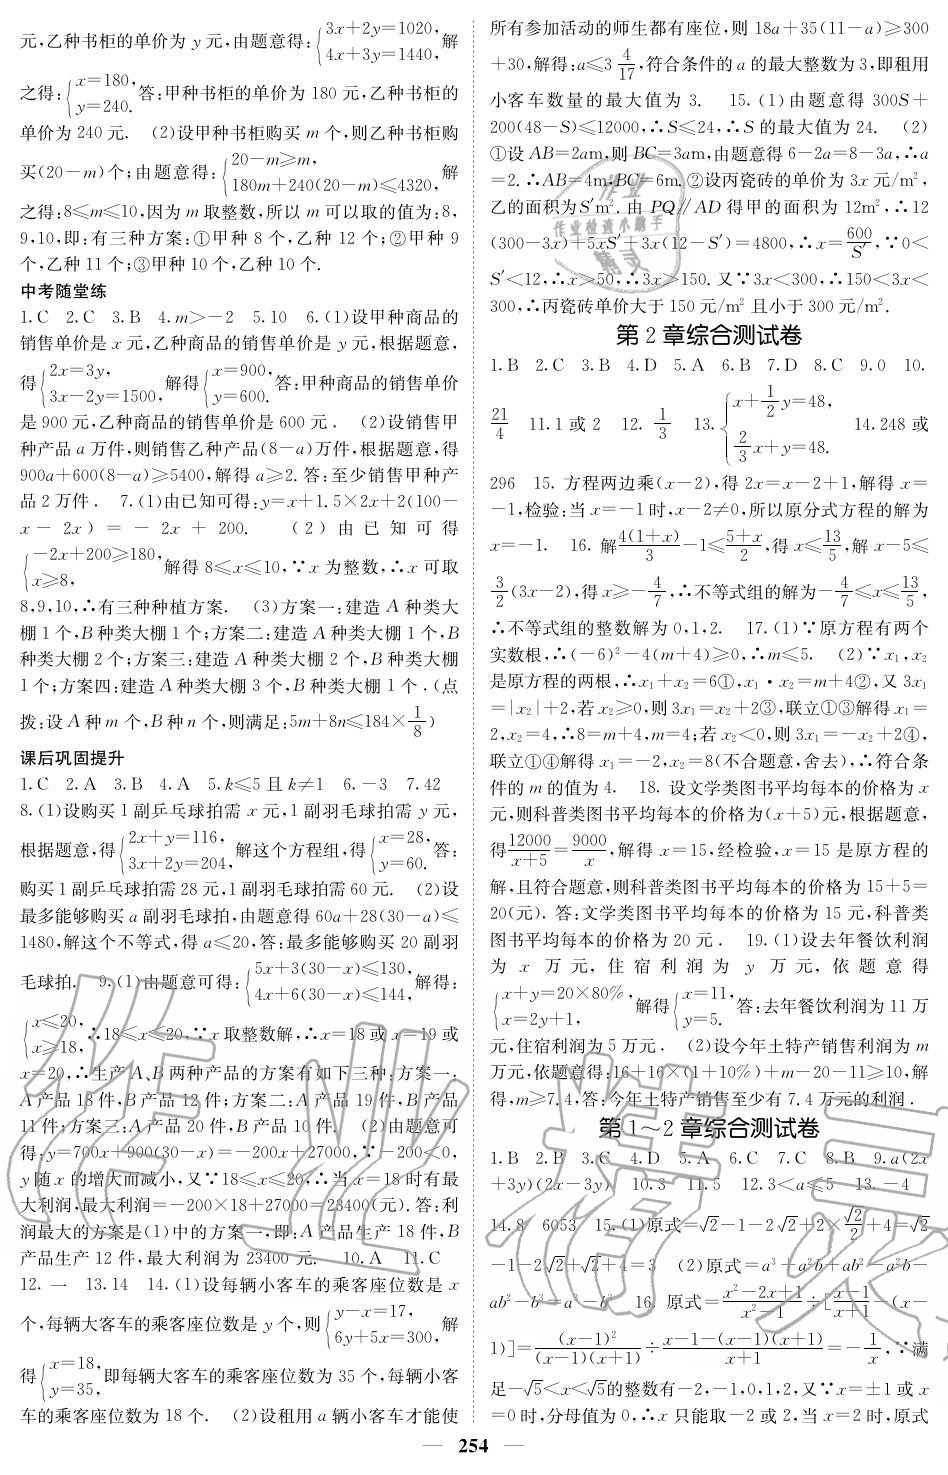 元,乙种书柜的单价为 y 元,由题意得:{3x+2y=1020, 4x+3y=1440, 解
之得:{x=180, y=240. 答:甲种书柜的单价为 180 元,乙种书柜的
单价为 240 元. (2)设甲种书柜购买 m 个,则乙种书柜购
买(20-m)个;由题意得:{20-m≥m, 180m+240(20-m)≤4320, 解
之得:8≤m≤10,因为 m 取整数,所以 m 可以取的值为:8,
9,10,即:有三种方案:①甲种 8 个,乙种 12 个;②甲种 9
个,乙种 11 个;③甲种 10 个,乙种 10 个.
中考随堂练
1.C 2.C 3.B 4.m>-2 5.10 6.(1)设甲种商品的
销售单价是 x 元,乙种商品的销售单价是 y 元,根据题意,
得{2x=3y, 3x-2y=1500, 解得{x=900, y=600. 答:甲种商品的销售单价
是 900 元,乙种商品的销售单价是 600 元. (2)设销售甲
种产品 a 万件,则销售乙种产品(8-a)万件,根据题意,得
900a+600(8-a)≥5400,解得 a≥2. 答:至少销售甲种产
品 2 万件. 7.(1)由已知可得:y=x+1.5×2x+2(100-
x-2x)=-2x+200. (2)由已知可得
{-2x+200≥180, x≥8, 解得 8≤x≤10,∵x 为整数,∴x 可取
8,9,10,∴有三种种植方案. (3)方案一:建造 A 种类大
棚 1 个,B种类大棚 1 个;方案二:建造 A 种类大棚 1 个,B
种类大棚 2 个;方案三:建造 A 种类大棚 2 个,B 种类大棚
1 个;方案四:建造 A 种类大棚 3 个,B种类大棚 1 个.(点
拨:设 A 种 m 个,B 种 n 个,则满足:5m+8n≤184×1/8)
课后巩固提升
1.C 2.A 3.B 4.A 5.k≤5 且 k≠1 6.-3 7.42
8.(1)设购买 1 副乒乓球拍需 x 元,1 副羽毛球拍需 y 元,
根据题意,得{2x+y=116, 3x+2y=204, 解这个方程组,得{x=28, y=60. 答:
购买 1 副乒乓球拍需 28 元,1 副羽毛球拍需 60 元. (2)设
最多能够购买 a 副羽毛球拍,由题意得 60a+28(30-a)≤
1480,解这个不等式,得 a≤20,答:最多能够购买 20 副羽
毛球拍. 9.(1)由题意可得:{5x+3(30-x)≤130, 4x+6(30-x)≤144, 解得:
{x≤20, x≥18, ∴18≤x≤20,∵x 取整数解,∴x=18 或 x=19 或
x=20,∴生产 A、B 两种产品的方案有如下三种:方案一:
A 产品 18 件,B 产品 12 件;方案二:A 产品 19 件,B 产品
11 件;方案三:A 产品 20 件,B 产品 10 件. (2)由题意可
得:y=700x+900(30-x)=-200x+27000,∵-200<0,
y 随 x 的增大而减小,又∵18≤x≤20,∴当 x=18 时有最
大利润,最大利润=-200×18+27000=23400(元).答:利
润最大的方案是(1)中的方案一,即:A 产品生产 18 件,B
产品生产 12 件,最大利润为 23400 元. 10.A 11.C
12.一 13.14 14.(1)设每辆小客车的乘客座位数是 x
个,每辆大客车的乘客座位数是 y 个,则{y-x=17, 6y+5x=300, 解
得{x=18, y=35, 即每辆大客车的乘客座位数为 35 个,每辆小客
车的乘客座位数为 18 个. (2)设租用 a 辆小客车才能使
所有参加活动的师生都有座位,则 18a+35(11-a)≥300
+30,解得:a≤3 4/17,符合条件的 a 的最大整数为 3,即租用
小客车数量的最大值为 3. 15.(1)由题意得 300S+
200(48-S)≤12000,∴S≤24,∴S 的最大值为 24. (2)
①设 AB=2am,则 BC=3am,由题意得 6-2a=8-3a,∴a
=2.∴AB=4m,BC=6m.②设丙瓷砖的单价为 3x 元/m²,
乙的面积为 S′m². 由 PQ∥AD 得甲的面积为 12m²,∴12
(300-3x)+5xS′+3x(12-S′)=4800,∴x=600/S′,∵0<
S′<12,∴x>50,∴3x>150. 又∵3x<300,∴150<3x<
300,∴丙瓷砖单价大于 150 元/m² 且小于 300 元/m².
第 2 章综合测试卷
1.B 2.C 3.B 4.D 5.A 6.B 7.D 8.C 9.0 10.
21/4 11.1 或 2 12. 1/3 13.{x+1/2y=48, 2/3x+y=48. 14.248 或
296 15. 方程两边乘(x-2),得 2x=x-2+1,解得 x=
-1,检验:当 x=-1 时,x-2≠0,所以原分式方程的解为
x=-1. 16. 解4(1+x)/3-1≤(5+x)/2,得 x≤13/5,解 x-5≤
3/2(3x-2),得 x≥-4/7,∴不等式组的解为-4/7≤x≤13/5,
∴不等式组的整数解为 0,1,2. 17.(1)∵原方程有两个
实数根,∴(-6)²-4(m+4)≥0,∴m≤5. (2)∵x₁,x₂
是原方程的两根,∴x₁+x₂=6①,x₁·x₂=m+4②,又 3x₁
=|x₂|+2,若 x₂≥0,则 3x₁=x₂+2③,联立①③解得 x₁=
2,x₂=4,∴8=m+4,m=4;若 x₂<0,则 3x₁=-x₂+2④,
联立①④解得 x₁=-2,x₂=8(不合题意,舍去),∴符合条
件的 m 的值为 4. 18. 设文学类图书平均每本的价格为 x
元,则科普类图书平均每本的价格为(x+5)元,根据题意,
得12000/(x+5)=9000/x,解得 x=15,经检验,x=15 是原方程的
解,且符合题意,则科普类图书平均每本的价格为 15+5=
20(元). 答:文学类图书平均每本的价格为 15 元,科普类
图书平均每本的价格为 20 元. 19.(1)设去年餐饮利润
为 x 万元,住宿利润为 y 万元,依题意得
{x+y=20×80%, x=2y+1, 解得{x=11, y=5. 答:去年餐饮利润为 11 万
元,住宿利润为 5 万元. (2)设今年土特产销售利润为 m
万元,依题意得:16+16×(1+10%)+m-20-11≥10,解
得,m≥7.4,答:今年土特产销售至少有 7.4 万元的利润.
第 1~2 章综合测试卷
1.B 2.B 3.C 4.D 5.A 6.C 7.C 8.B 9.a(2x
+3y)(2x-3y) 10.3 11.5 12.3<a≤5 13.-4
14.8 6053 15.(1)原式=√2-1-2√2+2×√2/2+4=√2
-1-2√2+√2+4=3 (2)原式=a³+a²b+ab²-a²b-
ab²-b³=a³-b³ 16. 原式=(x²-2x+1)/(x²-1)÷[(x-1)/(x+1)-(x-
1)]=(x-1)²/(x-1)(x+1)÷(x-1-(x-1)(x+1))/(x+1)=-1/x,∵满
足-√5<x<√5的整数有-2,-1,0,1,2,又∵x=±1 或 x
=0 时,分母值为 0,∴x 只能取-2 或 2,当 x=2 时,原式
— 254 —
作业
作业检查小助手
精灵
作业精灵